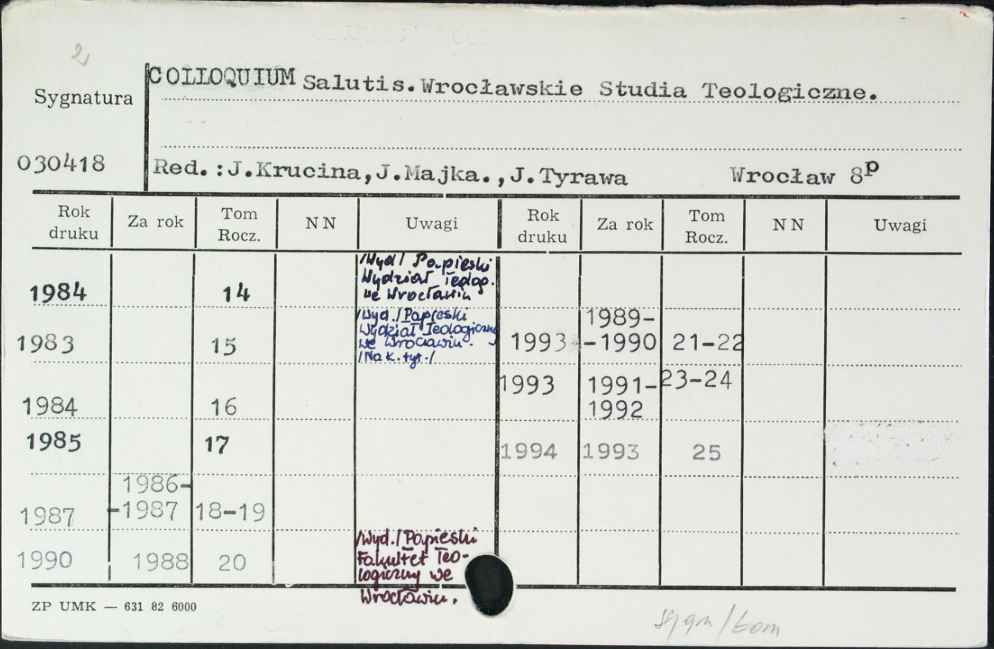 2
Sygnatura
COLLOQUIUM Salutis. Wrocławskie Studia Teologiczne.
030418
Red.: J. Krucina, J. Majka., J. Tyrawa Wrocław 8p
Rok druku Za rok Tom Rocz. NN Uwagi Rok druku Za rok Tom Rocz. NN Uwagi
1984 14 /Wyd/ Papieski
Wydział Teolog.
we Wrocławiu
1983 15 /Wyd./Papieski
Wydział Teologiczny
we Wrocławiu.
/Na k. tyt./
1993 1989-
-1990 21-22
1984 16
1993 1991-
1992 23-24
1985 17
1994 1993 25
1987 1986-
-1987 18-19
1990 1988 20 /Wyd./Papieski
Fakultet Teo-
logiczny we
Wrocławiu.
ZP UMK — 631 82 6000